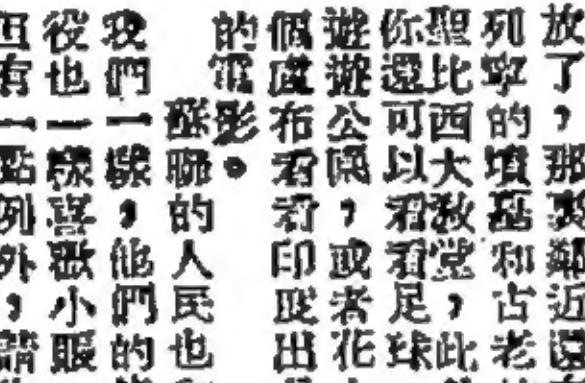 放了，那裏鄰近還
列寧的墳墓和古老
聖比西大教堂，此
你還可以看看足球
遊遊公園，或者花
個盧布看看印度出
的電影。
蘇聯的人民也
我們一樣，他們的
役也一樣喜歡小眼
但有一點例外，請